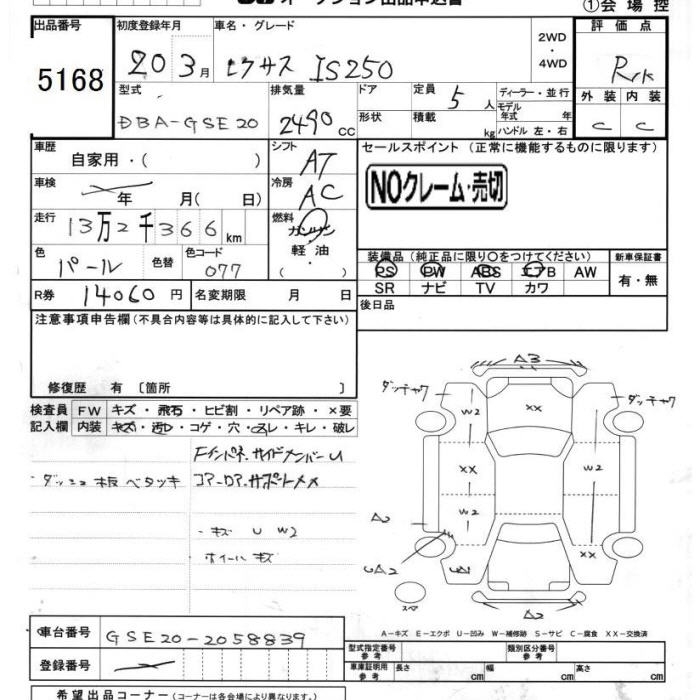 オークション出品申込書
①会場控
出品番号
5168
初度登録年月
20 3月
車名・グレード
レクサス IS250
2WD
・
4WD
評価点
R
外装 内装
C C
型式
DBA-GSE20
排気量
2490cc
ドア
形状
定員 5人
積載 kg
ディーラー・並行
モデル年式 年
ハンドル 左・右
車歴
自家用・( )
シフト
AT
セールスポイント (正常に機能するものに限ります)
NOクレーム・売切
車検
年 月( 日)
冷房
AC
走行
13万2千366km
燃料
ガソリン
軽油
( ・ )
色
パール
色替
色コード
077
装備品 (純正品に限り○をつけてください)
PS PW ABS エアB AW
SR ナビ TV カワ
新車保証書
有・無
R券 14060円
名変期限 月 日
後日品
注意事項申告欄 (不具合内容等は具体的に記入して下さい)
修復歴 有 〔箇所 〕
検査員記入欄
FW キズ・飛石・ヒビ割・リペア跡・×要
内装 キズ・汚レ・コゲ・穴・スレ・キレ・破レ
Fインパネ サイドメンバーU
ダッシュ板ベタツキ
コアーロアサポートXX
キズ U W2
ホイールキズ
A3
ダッチャク
ダッチャク
W2
XX
XX
W2
W2
A2
UA2
UA1
XX
スペア
A2
A-キズ E-エクボ U-凹み W-補修跡 S-サビ C-腐食 XX-交換済
車台番号 GSE20-2058839
登録番号
型式指定番号 参考
類別区分番号 参考
車庫証明用 参考
長さ cm
幅 cm
高さ cm
希望出品コーナー (コーナーは各会場により異なります。)